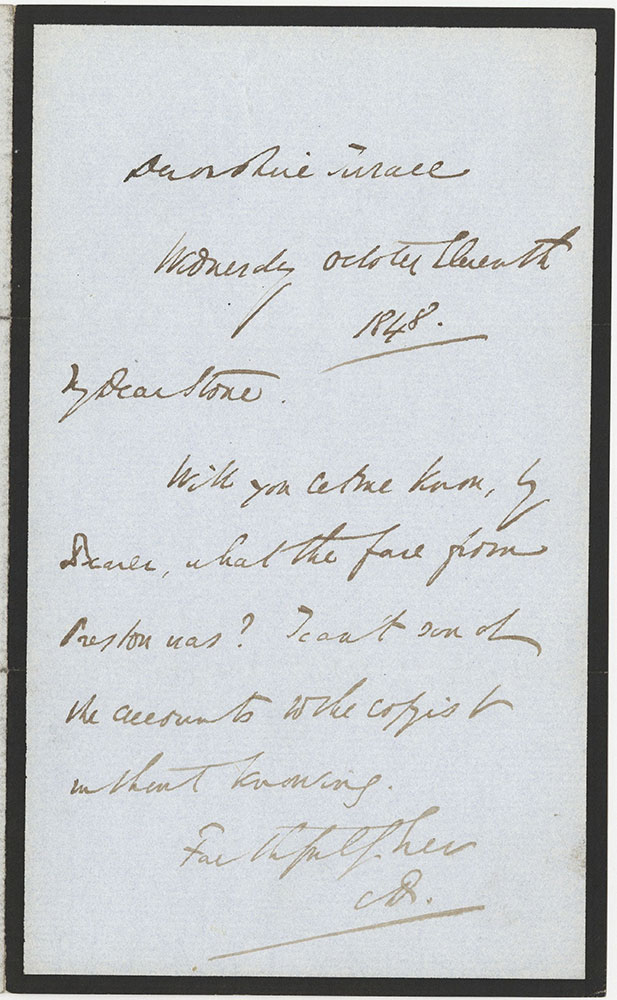 Devonshire Terrace
Wednesday October Eleventh
1848.
My Dear Stone.
Will you let me know, by
Bearer, what the fare from
Preston was? I can't send
the accounts to the copyist
without knowing.
Faithfully Ever
CD.